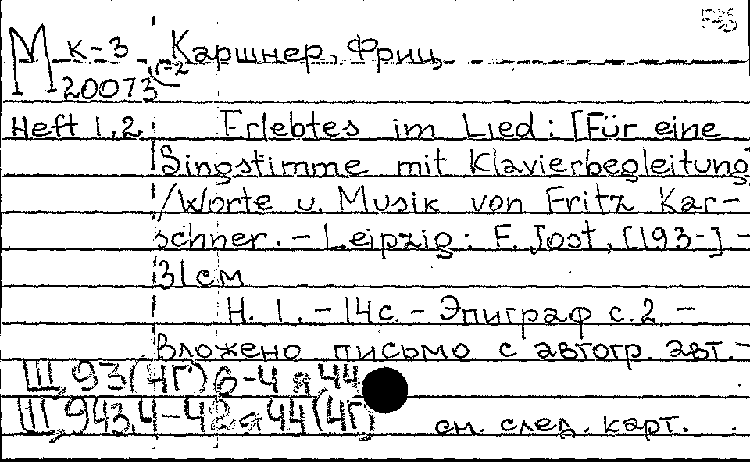 М К-3 Каршнер, Фриц
20073
Heft 1,2. Erlebtes im Lied: [Für eine
Singstimme mit Klavierbegleitung
/Worte u. Musik von Fritz Kar-
schner. - Leipzig: F. Jost, [193-] -
31 см
H. 1. - 14 с. - Эпиграф с. 2. -
Вложено письмо с автогр. авт. -
Щ93(4Г)6-4 я 44
Щ943.4-42 я 44(4Г) см. след. карт.